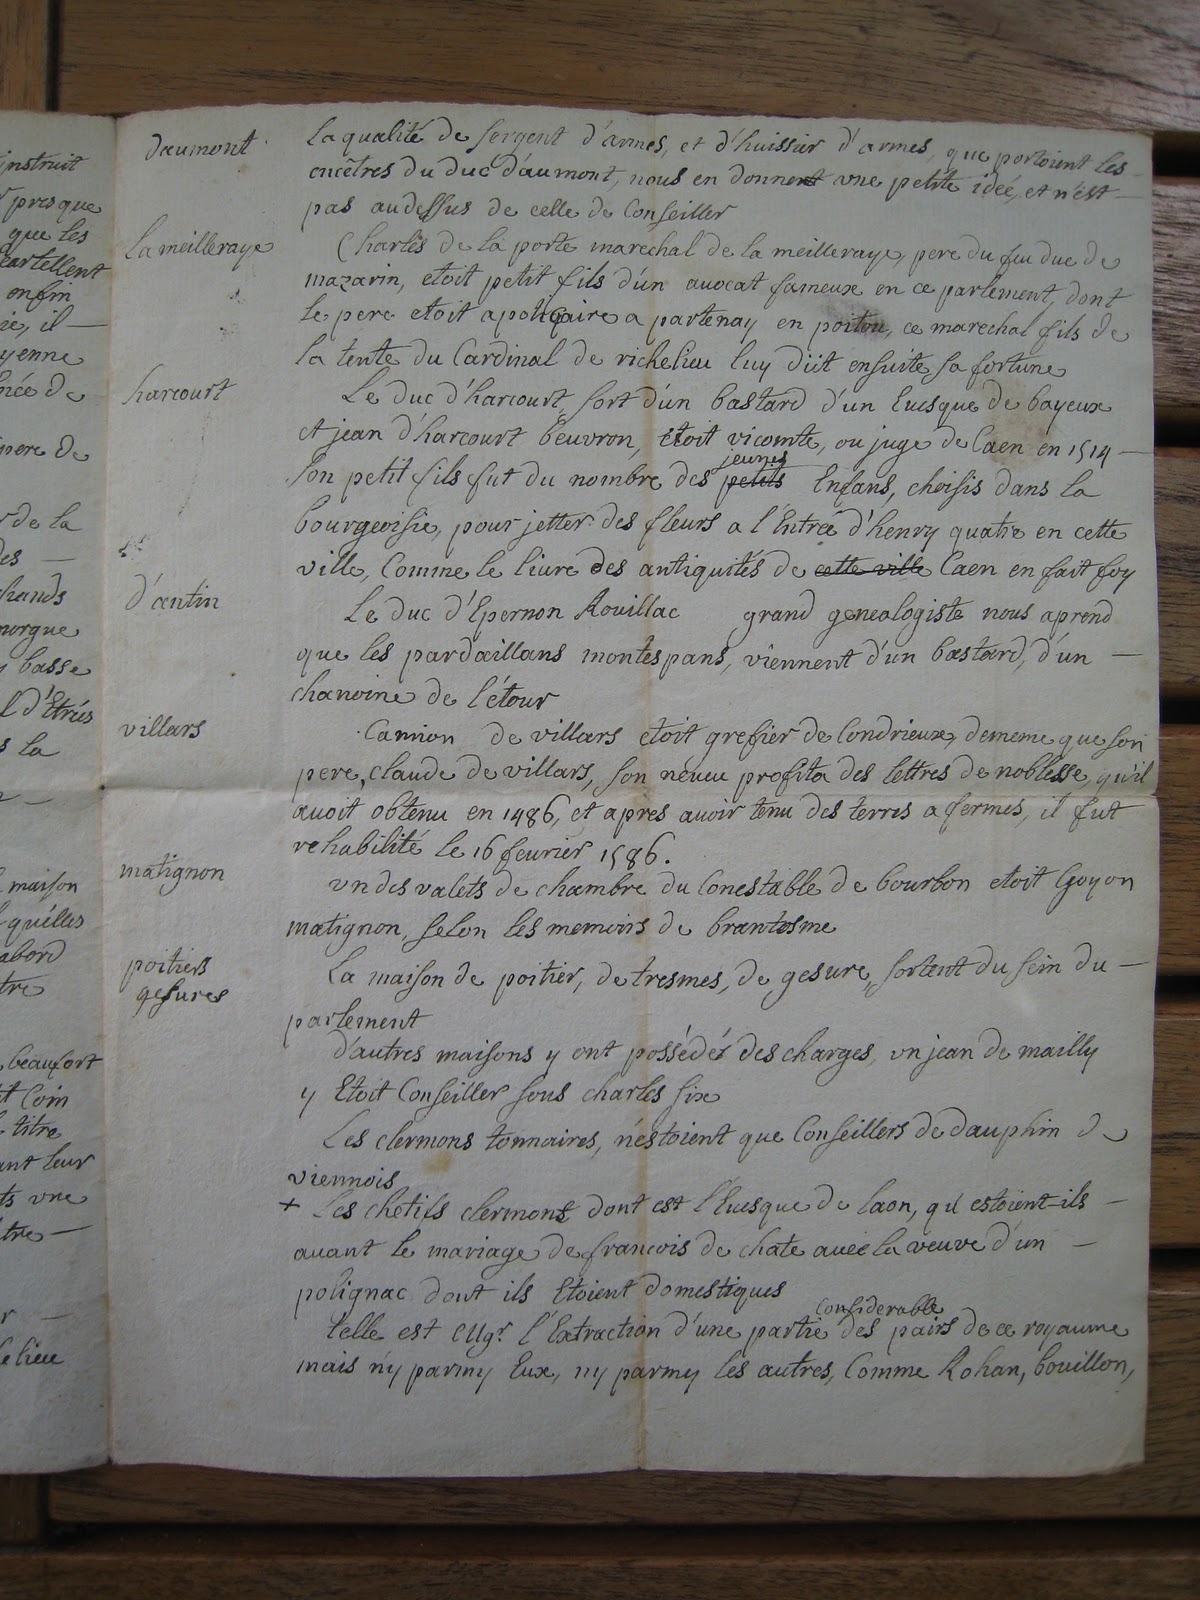 instruit
presque
que les
cartellent
enfin
il —
yenne
de
pere de
de la
des —
hands
morgue
basse
d'Etrées
la
maison
qu'elles
abord
tre
beaufort
Coin
titre
ant leur
ts vne
tre —
lieu
daumont la qualité de sergent d'armes, et d'huissier d'armes, que portoient les
encêtres du duc d'aumont, nous en donnent vne petite idée, et n'est —
pas audessus de celle de Conseiller
la meilleraye Charles de la porte marechal de la meilleraye, pere du feu duc de
mazarin, etoit petit fils d'un auocat fameux en ce parlement, dont
le pere etoit apoticaire a partenay en poitou, ce marechal fils de
la tente du Cardinal de richelieu luy dût ensuite sa fortune
harcourt Le duc d'harcourt, sort d'un bastard d'un Euesque de bayeux
et jean d'harcourt beuvron, etoit vicomte, ou juge de Caen en 1514 —
jeunes
son petit fils fut du nombre des petits Enfans, choisis dans la
bourgeoisie, pour jetter des fleurs a l'Entrée d'henry quatre en cette
ville, Comme le liure des antiquités de cette ville Caen en fait foy
d'antin Le duc d'Epernon Rouillac grand genealogiste nous aprend
que les pardaillans montespans, viennent d'un bastard, d'un —
chanoine de létour
villars Camion de villars etoit grefier de Condrieux, dememe que son
pere, claude de villars, son neueu profita des lettres de noblesse, qu'il
auoit obtenu en 1486, et apres auoir tenu des terres a fermes, il fut
rehabilité le 16 feurier 1586.
matignon vn des valets de chambre du Conestable de bourbon etoit Goyon
matignon, selon les memoirs de brantosme
poitiers La maison de poitier, de tresmes, de gesure, sortent du sein du —
gesures
parlement
d'autres maisons y ont possédéz des charges, vn jean de mailly
y Etoit Conseiller sous charles six
Les clermons tonnaires, n'estoient que Conseillers de dauphin de
viennois
+ Les chetifs clermons dont est l'Euesque de laon, qu'estoient-ils —
auant le mariage de francois de chate auec la veuve d'un —
polignac dont ils Etoient domestiques
Considerable
telle est Mgr l'Extraction d'une partie des pairs de ce royaume
mais n'y parmy Eux, ny parmy les autres, Comme Rohan, bouillon,